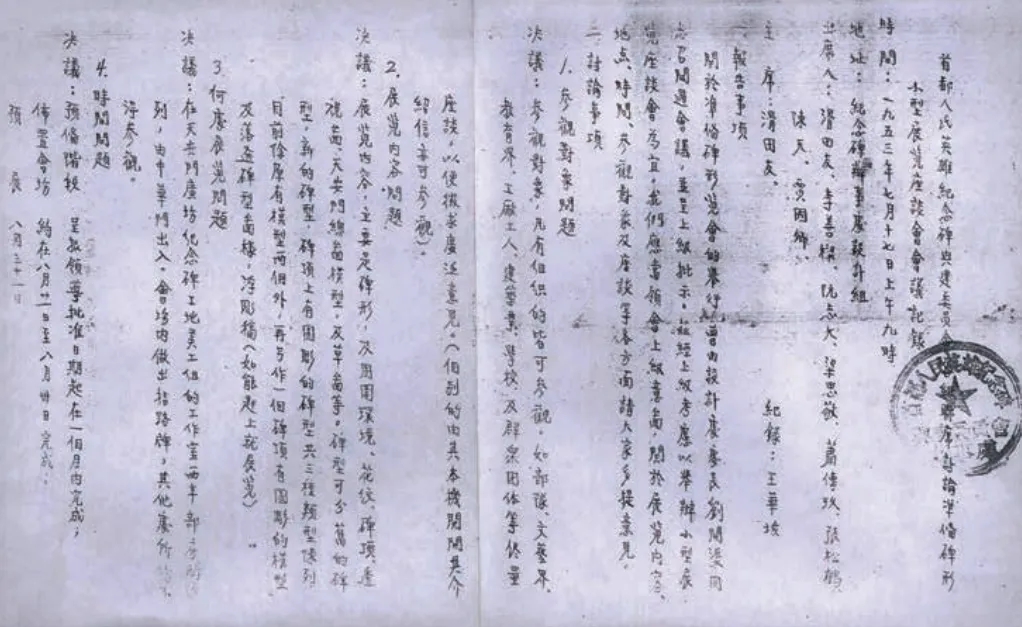 首都人民英雄紀念碑興建委員會 辦事處討論準備碑形
小型展覽座談會會議記錄
時間：一九五三年七月十七日上午九時
地址：紀念碑辦事處設計組
出席人：滑田友、李善 、阮志大、梁思敬、蕭傳玖、張松鶴、
陳天、
主席：滑田友。 紀錄：王華
一、報告事項
關於準備碑形 覽會的舉行，曾由設計處處長劉開渠同
志召開過會議，並呈上級批示。 經上級考慮以舉辦小型展
覽座談會為宜，我們應當領會上級意圖，關於展覽內容、
地点、時間、參觀對象及座談等各方面請大家多提意見。
二、討論事項
1. 參觀對象問題
決議：參觀對象，凡有組织的皆可參觀，如部隊、文藝界、
教育界、工廠工人、建筑業、學校、及群眾团体等終量
座談，以便徵求廣泛意見（個别的由其本機関開具介
紹信亦可參觀）。
2. 展覽內容問題
決議：展覽內容，主要是碑形，及周圍環境、花纹、碑頂、透
視畄、天安門總畄模型、及草畄等。碑型可分舊的碑
型，新的碑型，碑頂上有圆彫的碑型共三種類型陳列
目前除原有模型两個外，再另作一個碑頂有圆彫的模型
及落選碑型畄樣，浮彫稿（如能趕上就展覽）。
3. 何處展覽問題
決議：在天安門廣坊紀念碑工地美工组的工作室西半部 陳
列，由中華門出入。會坊內做出指路牌，其他處所
得參觀。
4. 時間問題
決議：預備階校 呈報領導批准日期起在一個月內完成，
佈置會坊 約在八月廿一日至八月卅日完成。
預展 八月三十一日